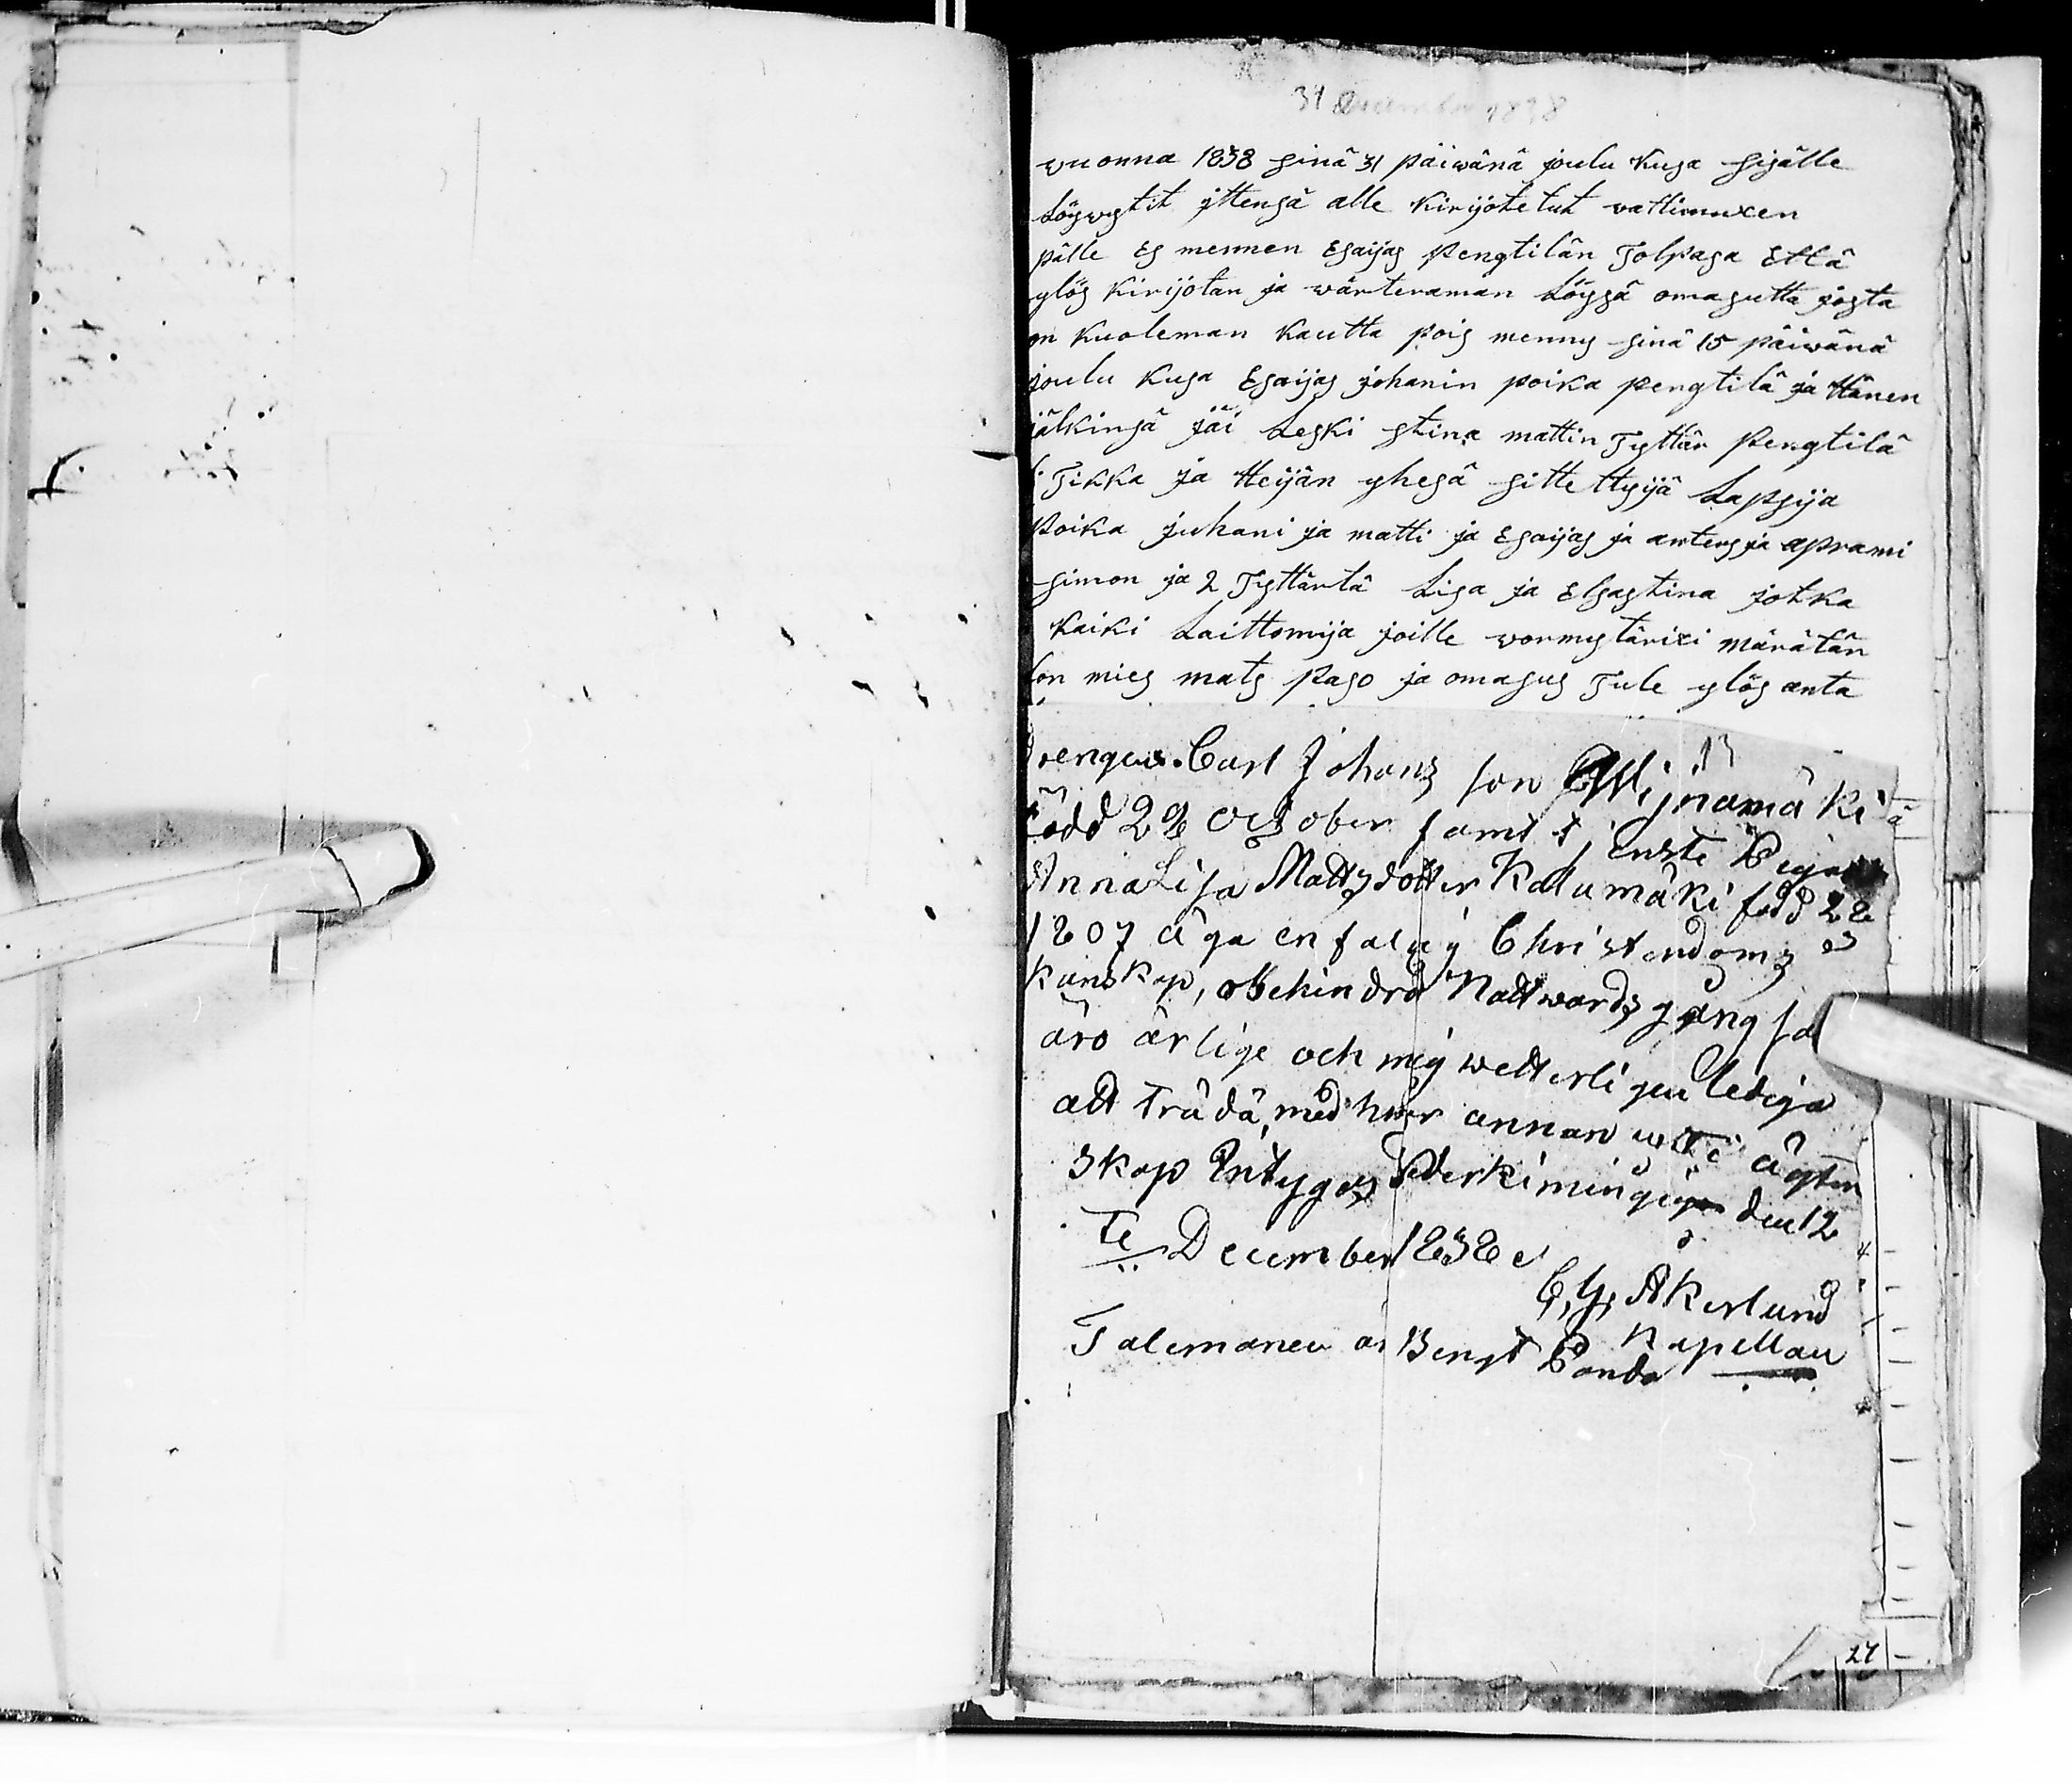 31 December 1838
wuonna 1838 sinä 31 päiwänä joulu kusa sisälle
Löywystit ittensä alle kirijotetut wattimuxen
pälle Es mennen Esaijas Pengtilän Tolpasa Että
ylös kirijotan ja wärteraman Löyssä omasutta josta
on kuoleman kautta pois mennys sinä 15 päiwänä
joulu kusa Esaijas johanin poika pengtilä ja ttänen
jälkinsä jäi Leski stina mattin Tyttär Pengtilä
Tikka ja tteijän yhesä sittettysijä Lapsija
Poika juhani ja matti ja Esaijas ja anters ja aprami
simon ja 2 Tyttärtä Lisa ja Elsastina jotka
kaiki Laittomija joille wormystärixi märätän
on mies mats paso ja omasus Tule ylös anta
rengen Carl Johans son Wijnamäki
född 28 october samt t jenste Pigan
Anna Lisa Mattsdotter Katumäki född 28
1807 äga enfaldig Christendoms
kunskap, obehindrad Nattwards gång sa
äro ärlige och mig wetterligen lediga
att träda, med hwar annan uti ägten
skap Entygas Ederkimingiga den 12
te December 1838
C, G, Åkerlund
Kapellan
Talemanen ar Bengt Ponda
27